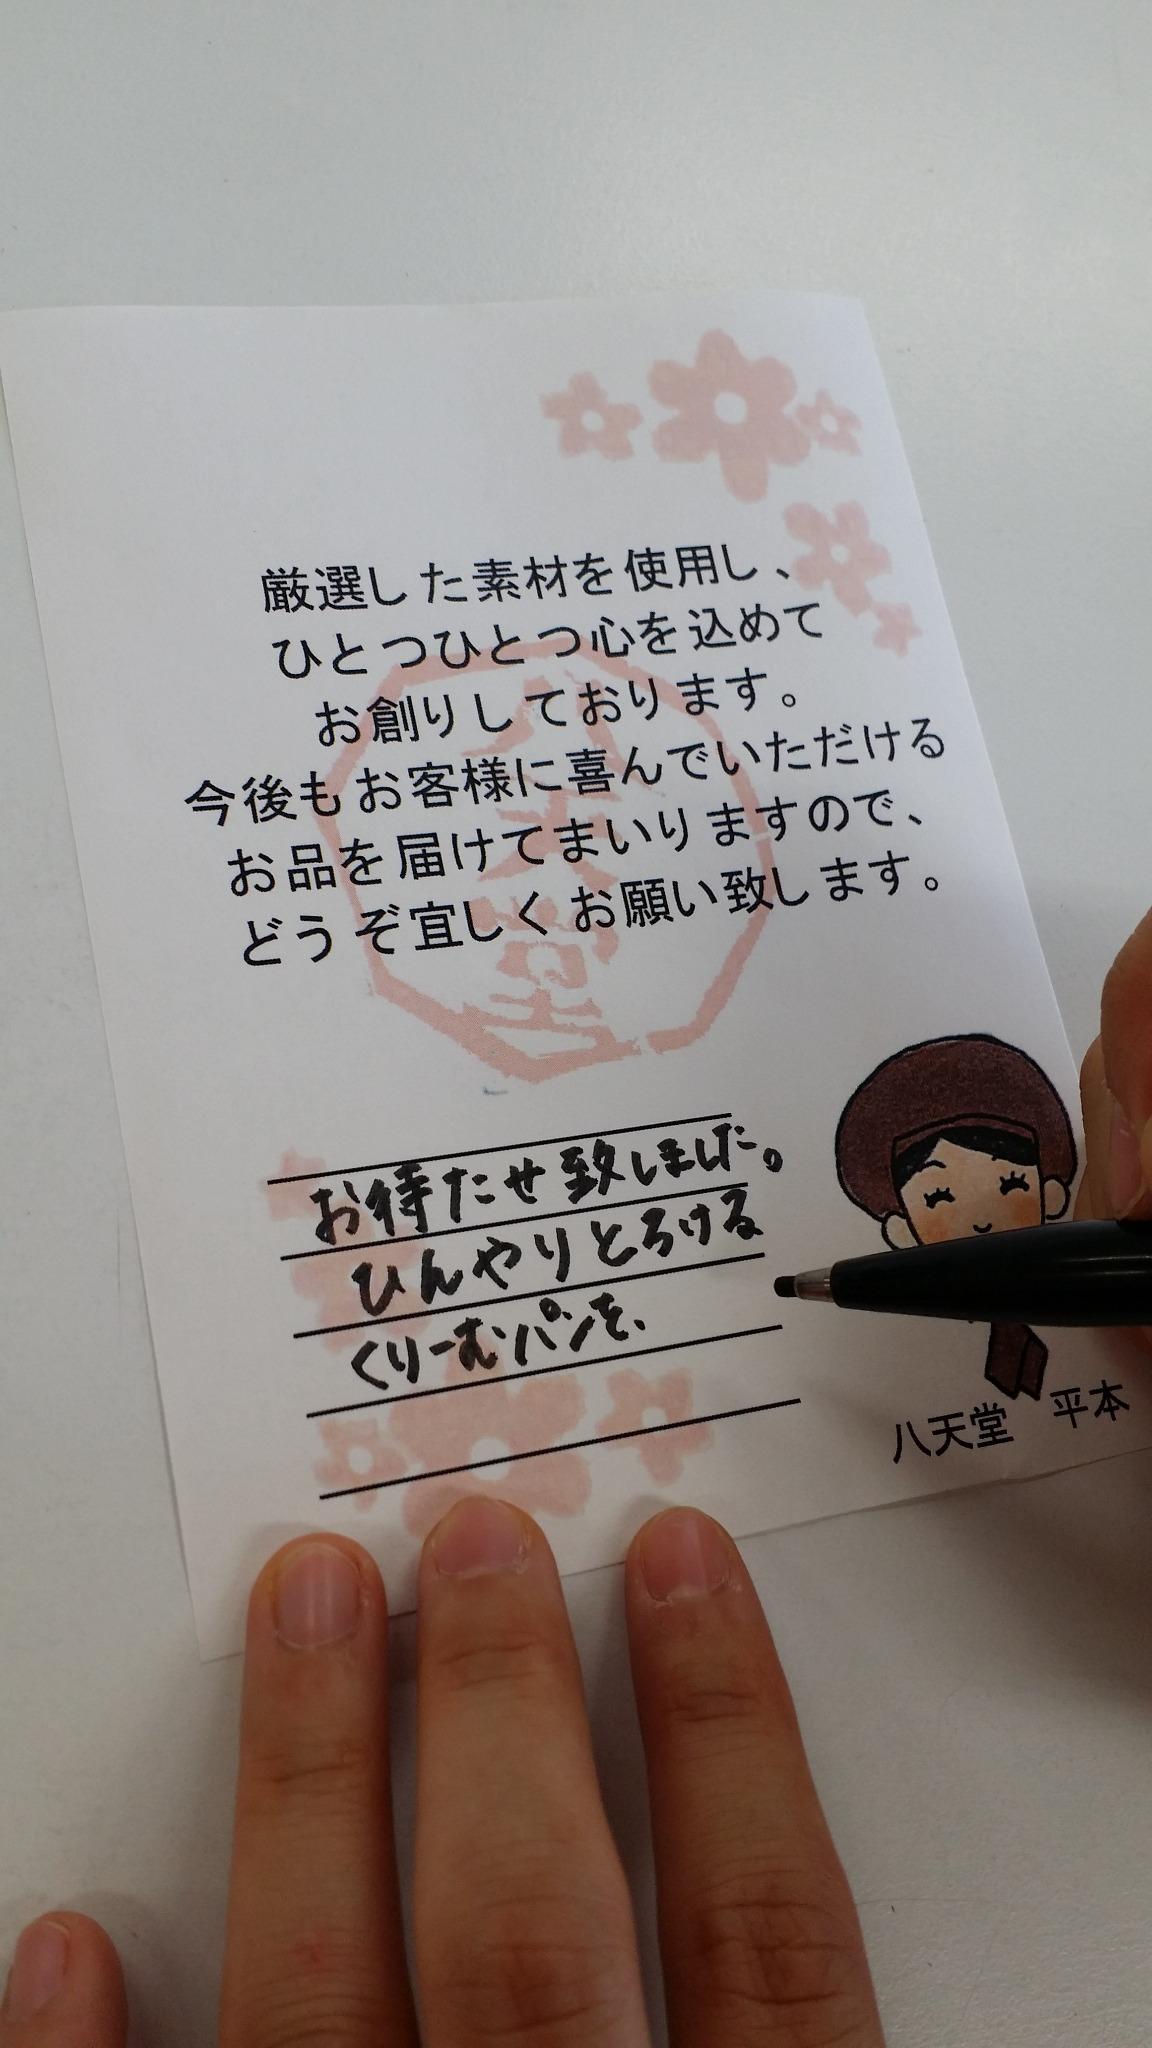 厳選した素材を使用し、
ひとつひとつ心を込めて
お創りしております。
今後もお客様に喜んでいただける
お品を届けてまいりますので、
どうぞ宜しくお願い致します。
お待たせ致しました。
ひんやりとろける
くりーむパンを、
八天堂 平本